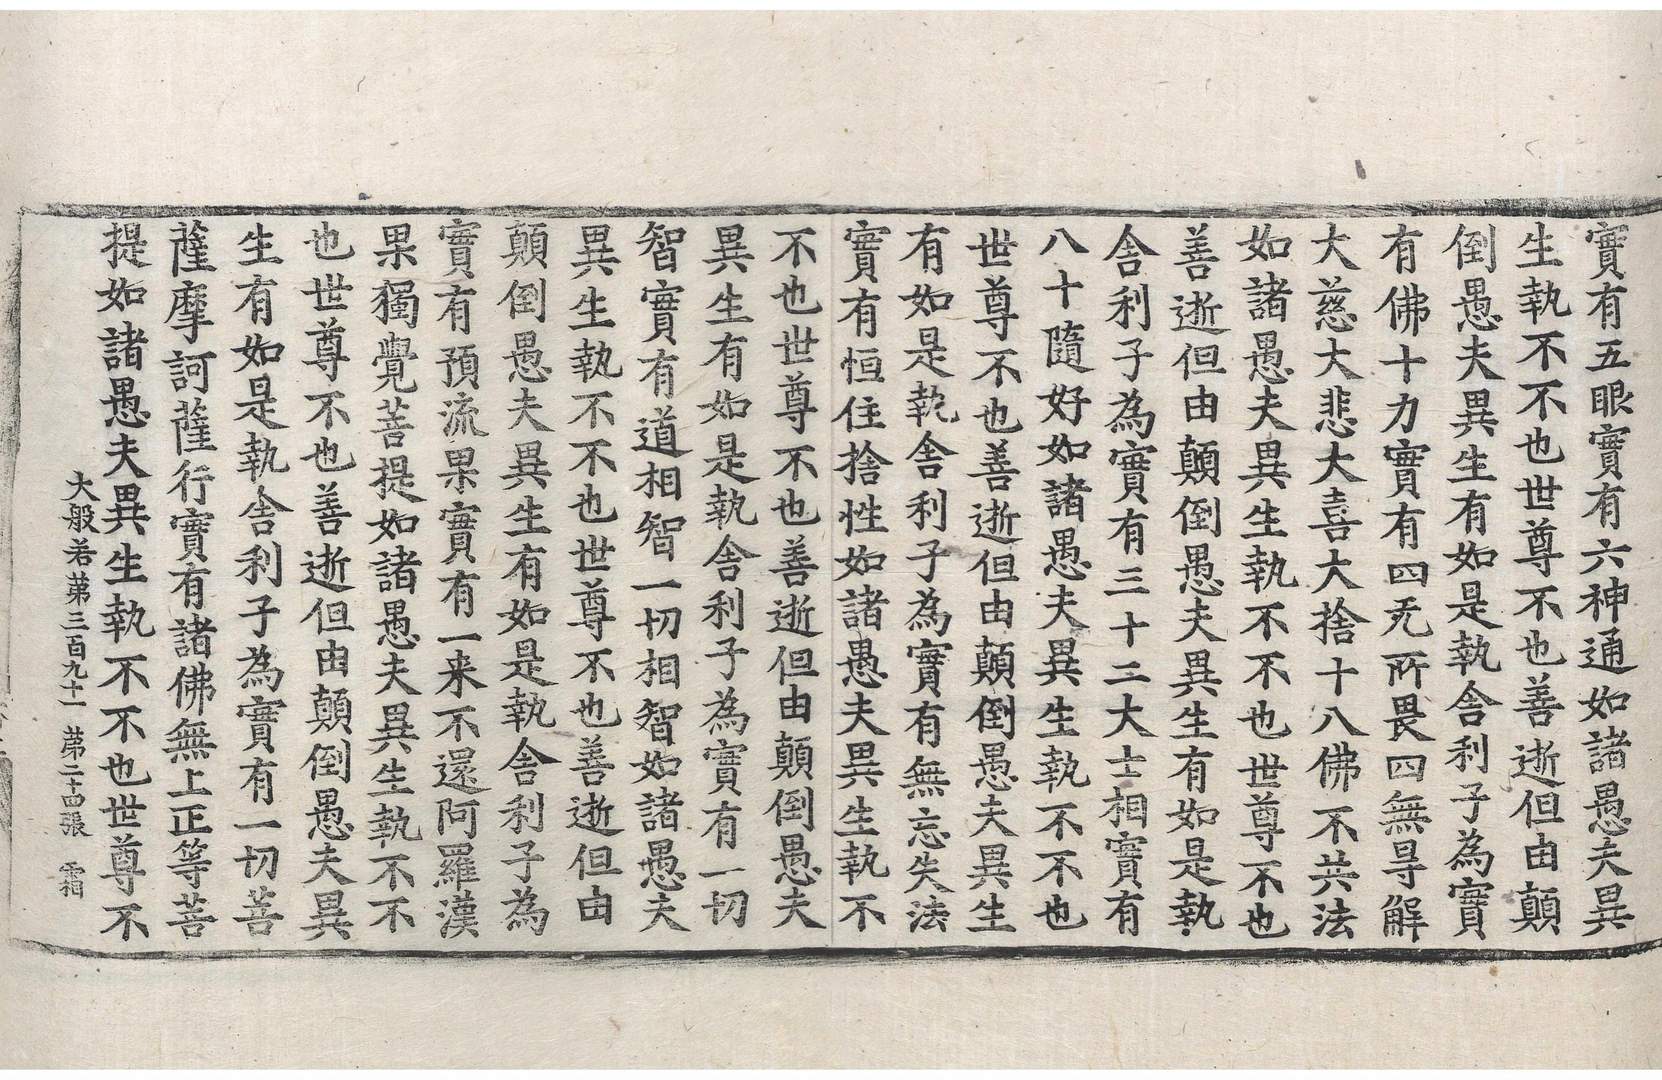 實有五眼實有六神通如諸愚夫異
生執不不也世尊不也善逝但由顛
倒愚夫異生有如是執舍利子為實
有佛十力實有四无所畏四無㝵解
大慈大悲大喜大捨十八佛不共法
如諸愚夫異生執不不也世尊不也
善逝但由顛倒愚夫異生有如是執
舍利子為實有三十二大士相實有
八十隨好如諸愚夫異生執不不也
世尊不也善逝但由顛倒愚夫異生
有如是執舍利子為實有無忘失法
實有恒住捨性如諸愚夫異生執不
不也世尊不也善逝但由顛倒愚夫
異生有如是執舍利子為實有一切
智實有道相智一切相智如諸愚夫
異生執不不也世尊不也善逝但由
顛倒愚夫異生有如是執舍利子為
實有預流果實有一来不還阿羅漢
果獨覺菩提如諸愚夫異生執不不
也世尊不也善逝但由顛倒愚夫異
生有如是執舍利子為實有一切菩
薩摩訶薩行實有諸佛無上正等菩
提如諸愚夫異生執不不也世尊不
大般若第三百九十一 第二十四張